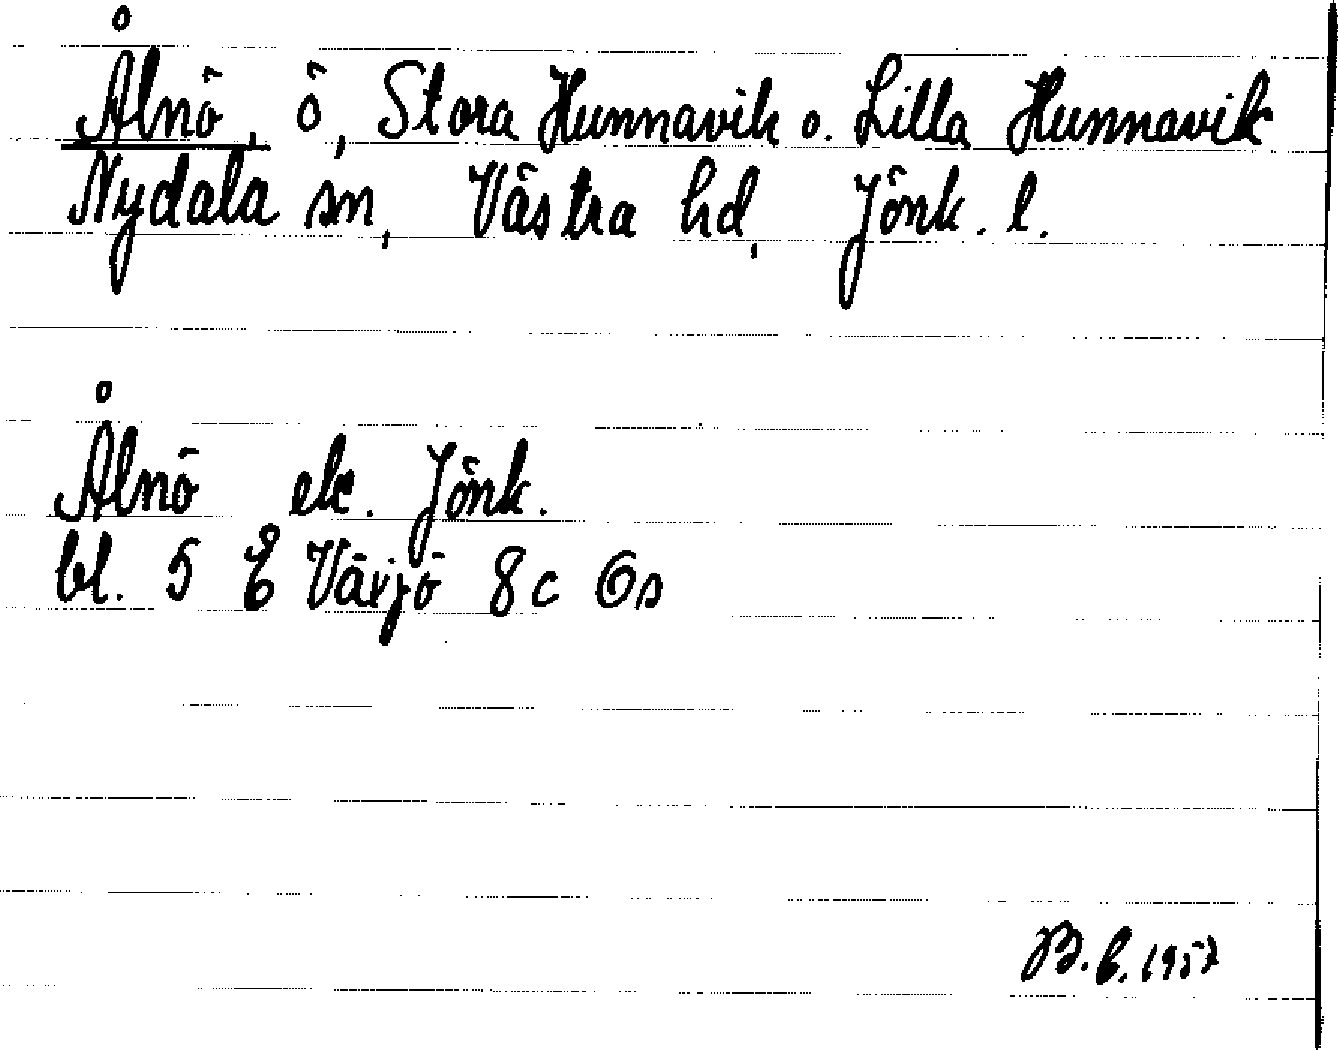 Ålnö, ö, Stora Hunnavik o. Lilla Hunnavik
Nydala sn, Västra hd, Jönk. l.
Ålnö ek. Jönk.
bl. 5 E Växjö 8c Ös
B.E. 1957